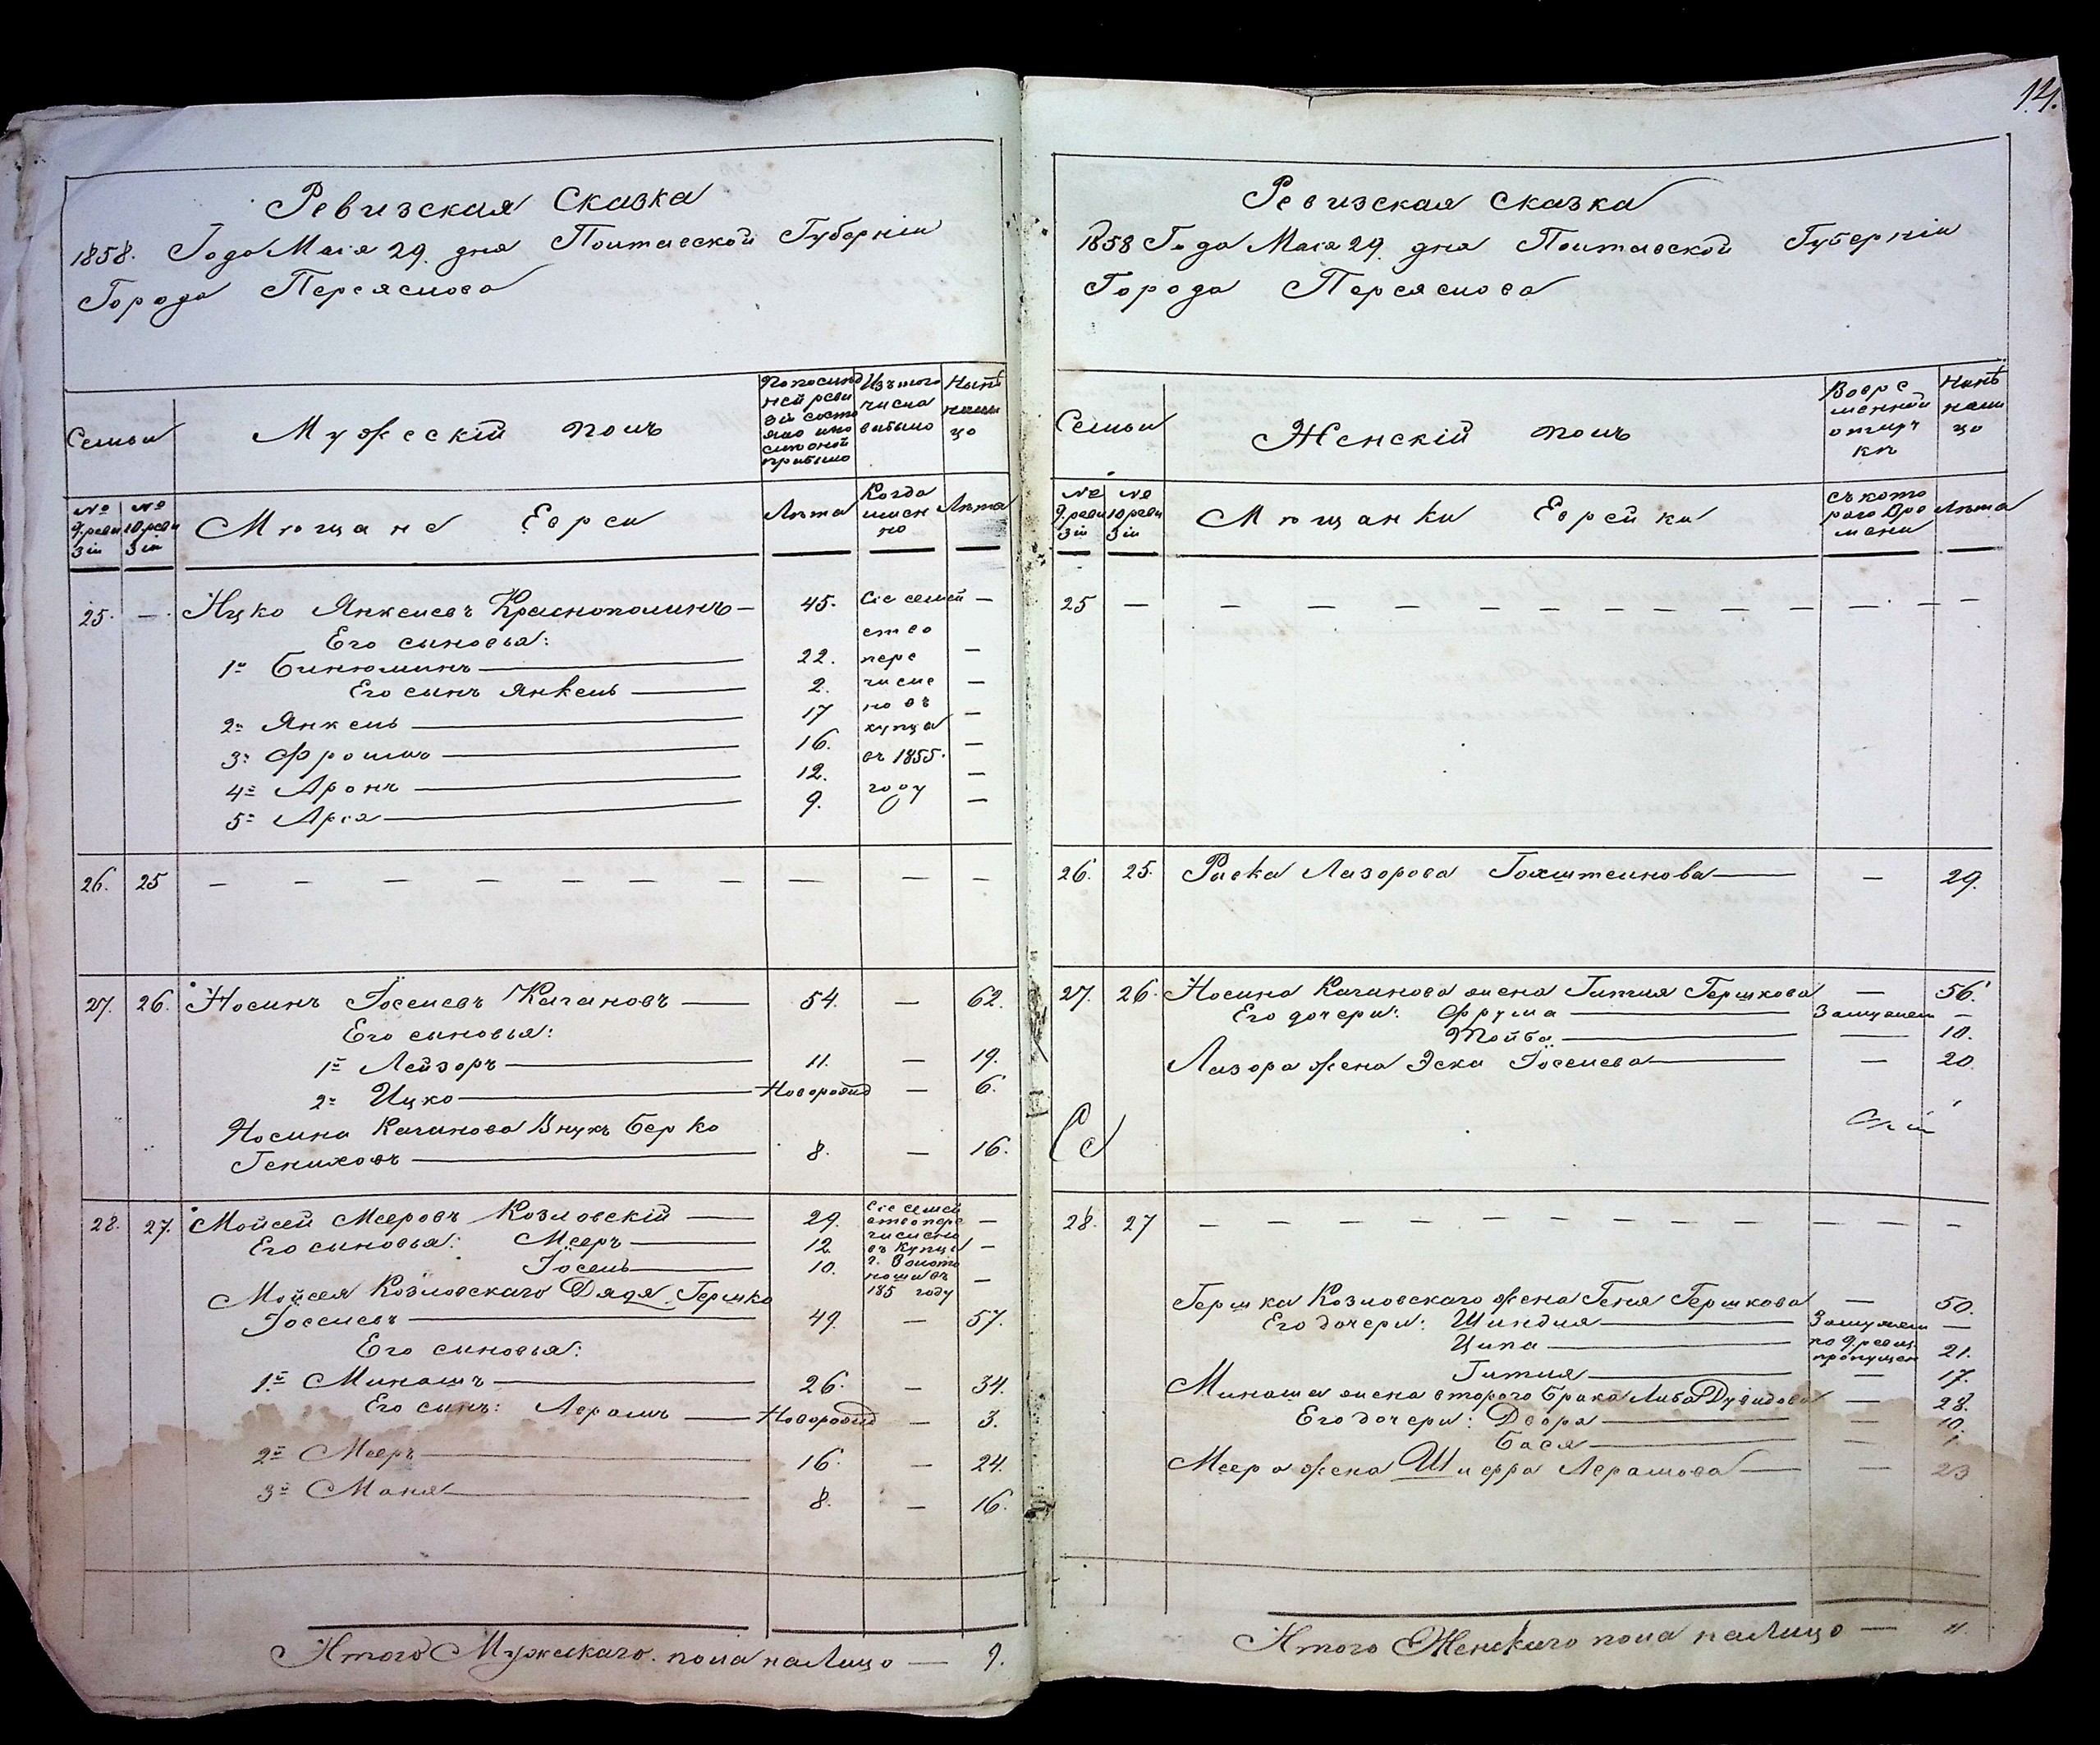 Ревизская Сказка
1858. Года Маія 29. дня Полтавской Губерніи
Города Переяслова
Семьи
Мужескій полъ
По послѣд
ней реви
зіи состо
яло или
послѣ оной
прибыло
Изъ того
числа
выбыло
Нынѣ
на ли
цо
№ 9. реви зіи
№ 10 реви зіи
Мѣщане Евреи
Лѣта
Когда
имен
но
Лѣта
25. — Ицко Янкелевъ Краснополинъ — 45. Сіе семей —
Его сыновья: ство
1й Бинюминъ — 22. пере —
Его сынъ Янкель — 2. числе —
2й Янкель — 17 но въ —
3й Фроимъ — 16. купцы —
4й Аронъ — 12. въ 1855. —
5й Арія — 9. году —
26. 25 — — — — — — — — — —
27. 26. Носинъ Іоселевъ Кагановъ — 54. — 62.
Его сыновья:
1й Лейзоръ — 11. — 19.
2й Ицко — Новорожд — 6.
Носина Каганова Внукъ Берко
Гениховъ — 8. — 16.
28. 27. Мойсей Мееровъ Козловскій — 29. Сіе семей —
Его сыновья: Мееръ — 12. ство пере
числено
въ купцы —
Іосель — 10. г. Золото
ноши въ —
185 году
Мойсея Козловскаго Дядя Гершко
Іоселевъ — 49. — 57.
Его сыновья:
1й Минашъ — 26. — 34.
Его сынъ: Аврамъ — Новорожд — 3.
2й Мееръ — 16. — 24.
3й Маня — 8. — 16.
Итого Мужескаго пола на Лицо — 9.
14.
Ревизская Сказка
1858 Года Маія 29. дня Полтавской Губерніи
Города Переяслова
Семьи
Женскій полъ
Во вре
менной
отлуч
кѣ
Нынѣ
на ли
цо
№ 9. реви зіи
№ 10 реви зіи
Мѣщанки Еврейки
съ кото
раго вре
мени
Лѣта
25 — — — — — — — — — — — —
26. 25. Раска Лазорова Гохштеинова — — 29.
27. 26. Носина Каганова жена Гитля Гершкова — 56.
Его дочери: Фрума — Замужем —
Тойба — — 10.
Лазора жена Эска Іоселева — — 20
28. 27 — — — — — — — — — — —
Гершка Козловскаго жена Геня Гершкова — 50.
Его дочери: Шиндля — Замужем —
Ципа — по 9 ревиз.
пропущен 21.
Гитля — — 17.
Минаша жена втораго брака Либа Дувидова — 28.
Его дочери: Двора — — 10.
Бася — — 1.
Меера жена Шифра Аврамова — — 23
Итого Женскаго пола на Лицо — 11.